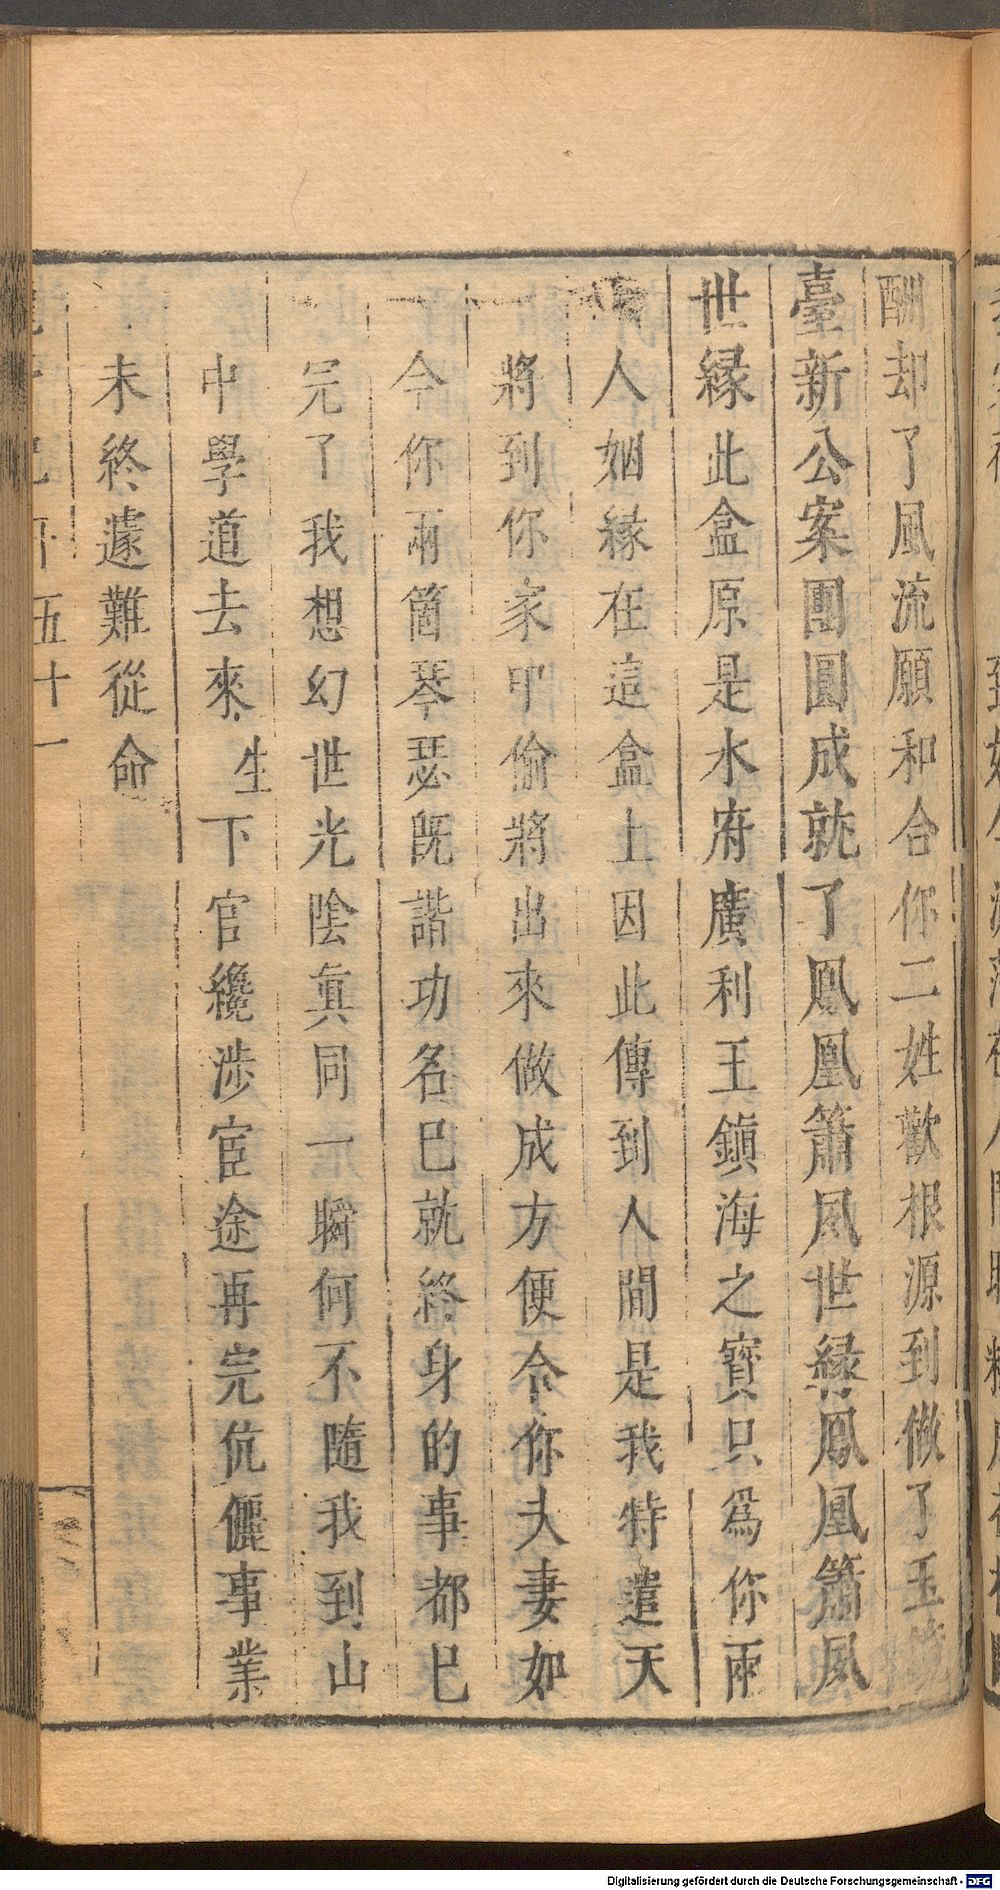 酬却了風流願和合你二姓歡根源到做了玉鏡
臺新公案團圓成就了鳳凰簫鳳世緣鳳凰簫鳳
世緣此盒原是水府廣利王鎮海之寶只爲你兩
人姻緣在這盒上因此傳到人間是我特遣天
將到你家中偷將出來做成方便令你夫妻如
今你兩箇琴瑟旣諧功名已就終身的事都已
完了我想幻世光陰眞同一瞬何不隨我到山
中學道去來生下官纔涉宦途再完伉儷事業
未終遽難從命
五十一
Digitalisierung gefördert durch die Deutsche Forschungsgemeinschaft - DFG